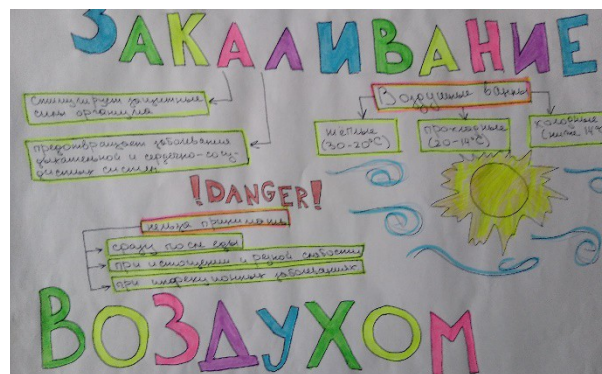 ЗАКАЛИВАНИЕ
стимулирует защитные
силы организма
предотвращает заболевания
дыхательной и сердечно-сосу-
дистых систем
Воздушные ванны
теплые
(30-20°С)
прохладные
(20-14°С)
холодные
(ниже 14°
!DANGER!
нельзя принимать
сразу после еды
при истощении и резкой слабости
при инфекционных заболеваниях
ВОЗДУХОМ